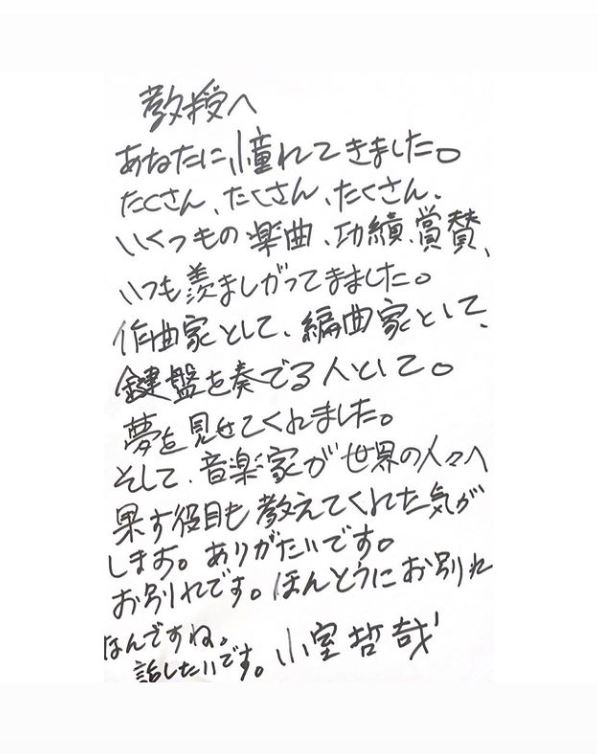 教授へ
あなたに憧れてきました。
たくさん、たくさん、たくさん、
いくつもの楽曲、功績、賞賛、
いつも羨ましがってきました。
作曲家として、編曲家として、
鍵盤を奏でる人として。
夢を見せてくれました。
そして、音楽家が世界の人々へ
果す役目も教えてくれた気が
します。ありがたいです。
お別れです。ほんとうにお別れ
なんですね。
話したいです。小室哲哉